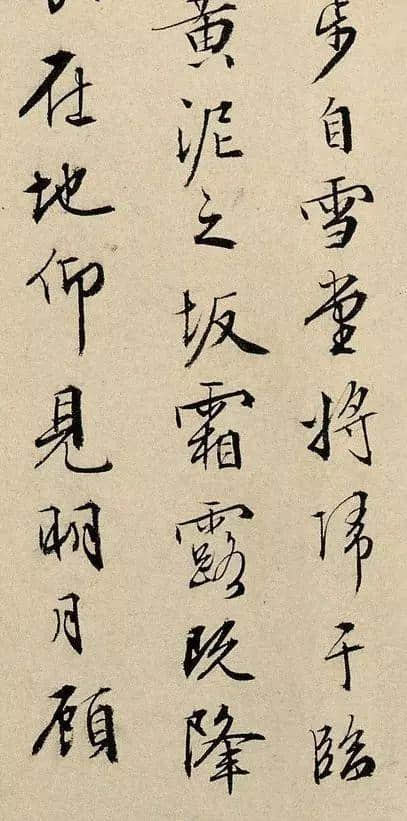 步自雪堂將歸于臨
黃泥之坂霜露既降
在地仰見明月顧